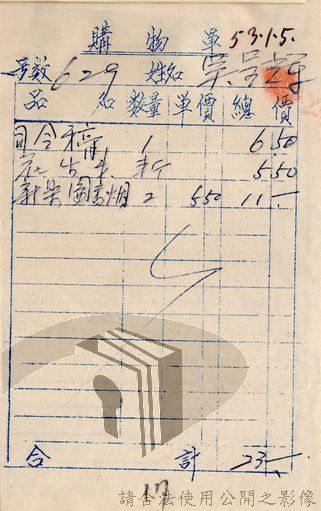 購物單 53.1.5.
号数 629 姓名 吳
品名 数量 单價 總價
司令 1 6 50
5 50
新樂園香烟 2 5 50 11 -
合計 23 -
17
請合法使用公開之影像